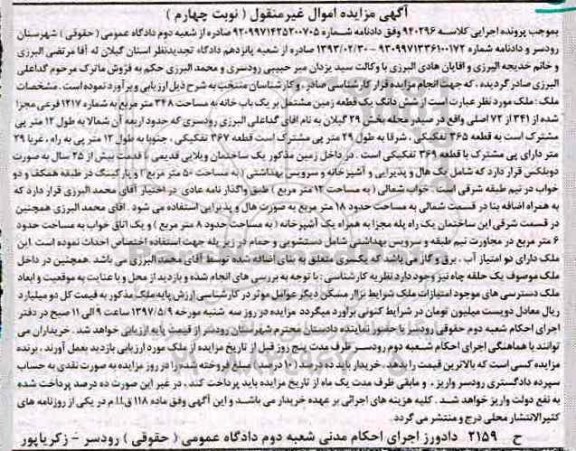 آگهی مزایده اموال غیرمنقول ( نوبت چهارم )
بموجب پرونده اجرایی کلاسه ۹۲۰۲۹۶ وفق دادنامه شماره ۹۲۰۹۹۷۱۴۲۵۲۰۰۷۰۵ صادره از شعبه دوم دادگاه عمومی (حقوقی ) شهرستان
رودسر و دادنامه شماره ۹۳۰۹۹۷۱۳۳۶۱۰۰۱۷۲ - ۱۳۹۳/۰۲/۳۰ صادره از شعبه پانزدهم دادگاه تجدیدنظر استان گیلان له آقا مرتضی البرزی
و خانم خدیجه البرزی و اقایان هادی البرزی با وکالت سید یزدان میر حبیبی رودسری و محمد البرزی حکم به فروش ماترک مرحوم گداعلی
البرزی صادر گردیده ، که جهت انجام مزایده قرار کارشناسی صادر ، و کارشناسان منتخب به شرح ذیل ارزیابی و برآورد نموده است . مشخصات
ملک : ملک مورد نظر عبارت است از شش دانگ یک قطعه زمین مشتمل بر یک باب خانه به مساحت ۳۴۸ متر مربع به شماره ۱۲۱۷ فرعی مجزا
شده از ۳۴۱ از ۷۲ اصلی واقع در صیدر محله بخش ۲۹ گیلان به نام اقای گداعلی البرزی رودسری که حدود اربعه آن شمالا به طول ۱۲ متر پی
مشترک است به قطعه ۳۶۵ تفکیکی ، شرقا به طول ۲۹ متر پی مشترک است قطعه ۳۶۷ تفکیکی ، جنوبا به طول ۱۲ متر پی به راه ، غربا ۲۹
متر دارای پی مشترک با قطعه ۳۶۹ تفکیکی است . در داخل زمین مذکور یک ساختمان ویلایی قدیمی با قدمت بیش از ۲۵ سال به صورت
دوبلکس قرار دارد که شامل یک هال و پذیرایی و آشپزخانه و سرویس بهداشتی ( به مساحت ۵۰ متر مربع ) و پارکینگ در طبقه همکف و دو
خواب در نیم طبقه شرقی است . خواب شمالی ( به مساحت ۱۲ متر مربع ) طبق واگذار نامه عادی در اختیار آقای محمد البرزی قرار دارد که
به همراه اضافه بنا در قسمت شمالی به مساحت حدود ۱۸ متر مربع به صورت هال و پذیرایی استفاده می شود . اقای محمد البرزی همچنین
در قسمت شرقی این ساختمان یک راه پله مجزا به همراه یک آشپزخانه ( به مساحت حدود ۸ متر مربع ) و یک اتاق خواب به مساحت حدود
۶ متر مربع در مجاورت نیم طبقه و سرویس بهداشتی شامل دستشویی و حمام در زیر پله جهت استفاده اختصاص احداث نموده است این
ملک دارای دو امتیاز آب ، برق و گاز می باشد که یکسری متعلق به بنای اضافه شده توسط آقای محمد البرزی می باشد . همچنین در داخل
ملک موصوف یک حلقه چاه نیز وجود دارد نظریه کارشناسی : با توجه به بررسی های انجام شده و بازدید از محل و با عنایت به موقعیت و ابعاد
ملک دسترسی های موجود امتیازات ملک شرایط بازار مسکن دیگر عوامل موثر در کارشناسی ارزش پایه ملک مذکور به قیمت کل دو میلیارد
ریال معادل دویست میلیون تومان در شرایط کنونی برآورد میگردد مزایده در روز سه شنبه مورخه ۱۳۹۷/۵/۹ ساعت ۹ الی ۱۱ صبح در دفتر
اجرای احکام شعبه دوم حقوقی رودسر با حضور نماینده دادستان محترم شهرستان رودسر از قیمت پایه ارزیابی خواهد شد . خریداران می
توانند با هماهنگی اجرای احکام شعبه دوم رودسر ظرف مدت پنج روز قبل از تاریخ مزایده از ملک مورد ارزیابی بازدید بعمل آورند ، برنده
مزایده کسی است که بالاترین قیمت را بدهد . خریدار باید ده درصد (۱۰ درصد) مبلغ فروخته شده را در روز مزایده به صورت نقدی به حساب
سپرده دادگستری رودسر واریز ، و مابقی ظرف مدت یک ماه از تاریخ مزایده باید پرداخت کند ، در غیر این صورت ده درصد پرداخت شده
به نفع دولت واریز خواهد شد . کلیه هزینه های اجرائی بر عهده خریدار می باشد و این آگهی وفق ماده ۱۱۸ ق.ا.م در یکی از روزنامه های
کثیرالانتشار محلی درج و منتشر می گردد.
ح ۲۱۵۹ دادورز اجرای احکام مدنی شعبه دوم دادگاه عمومی ( حقوقی ) رودسر - زکریاپور